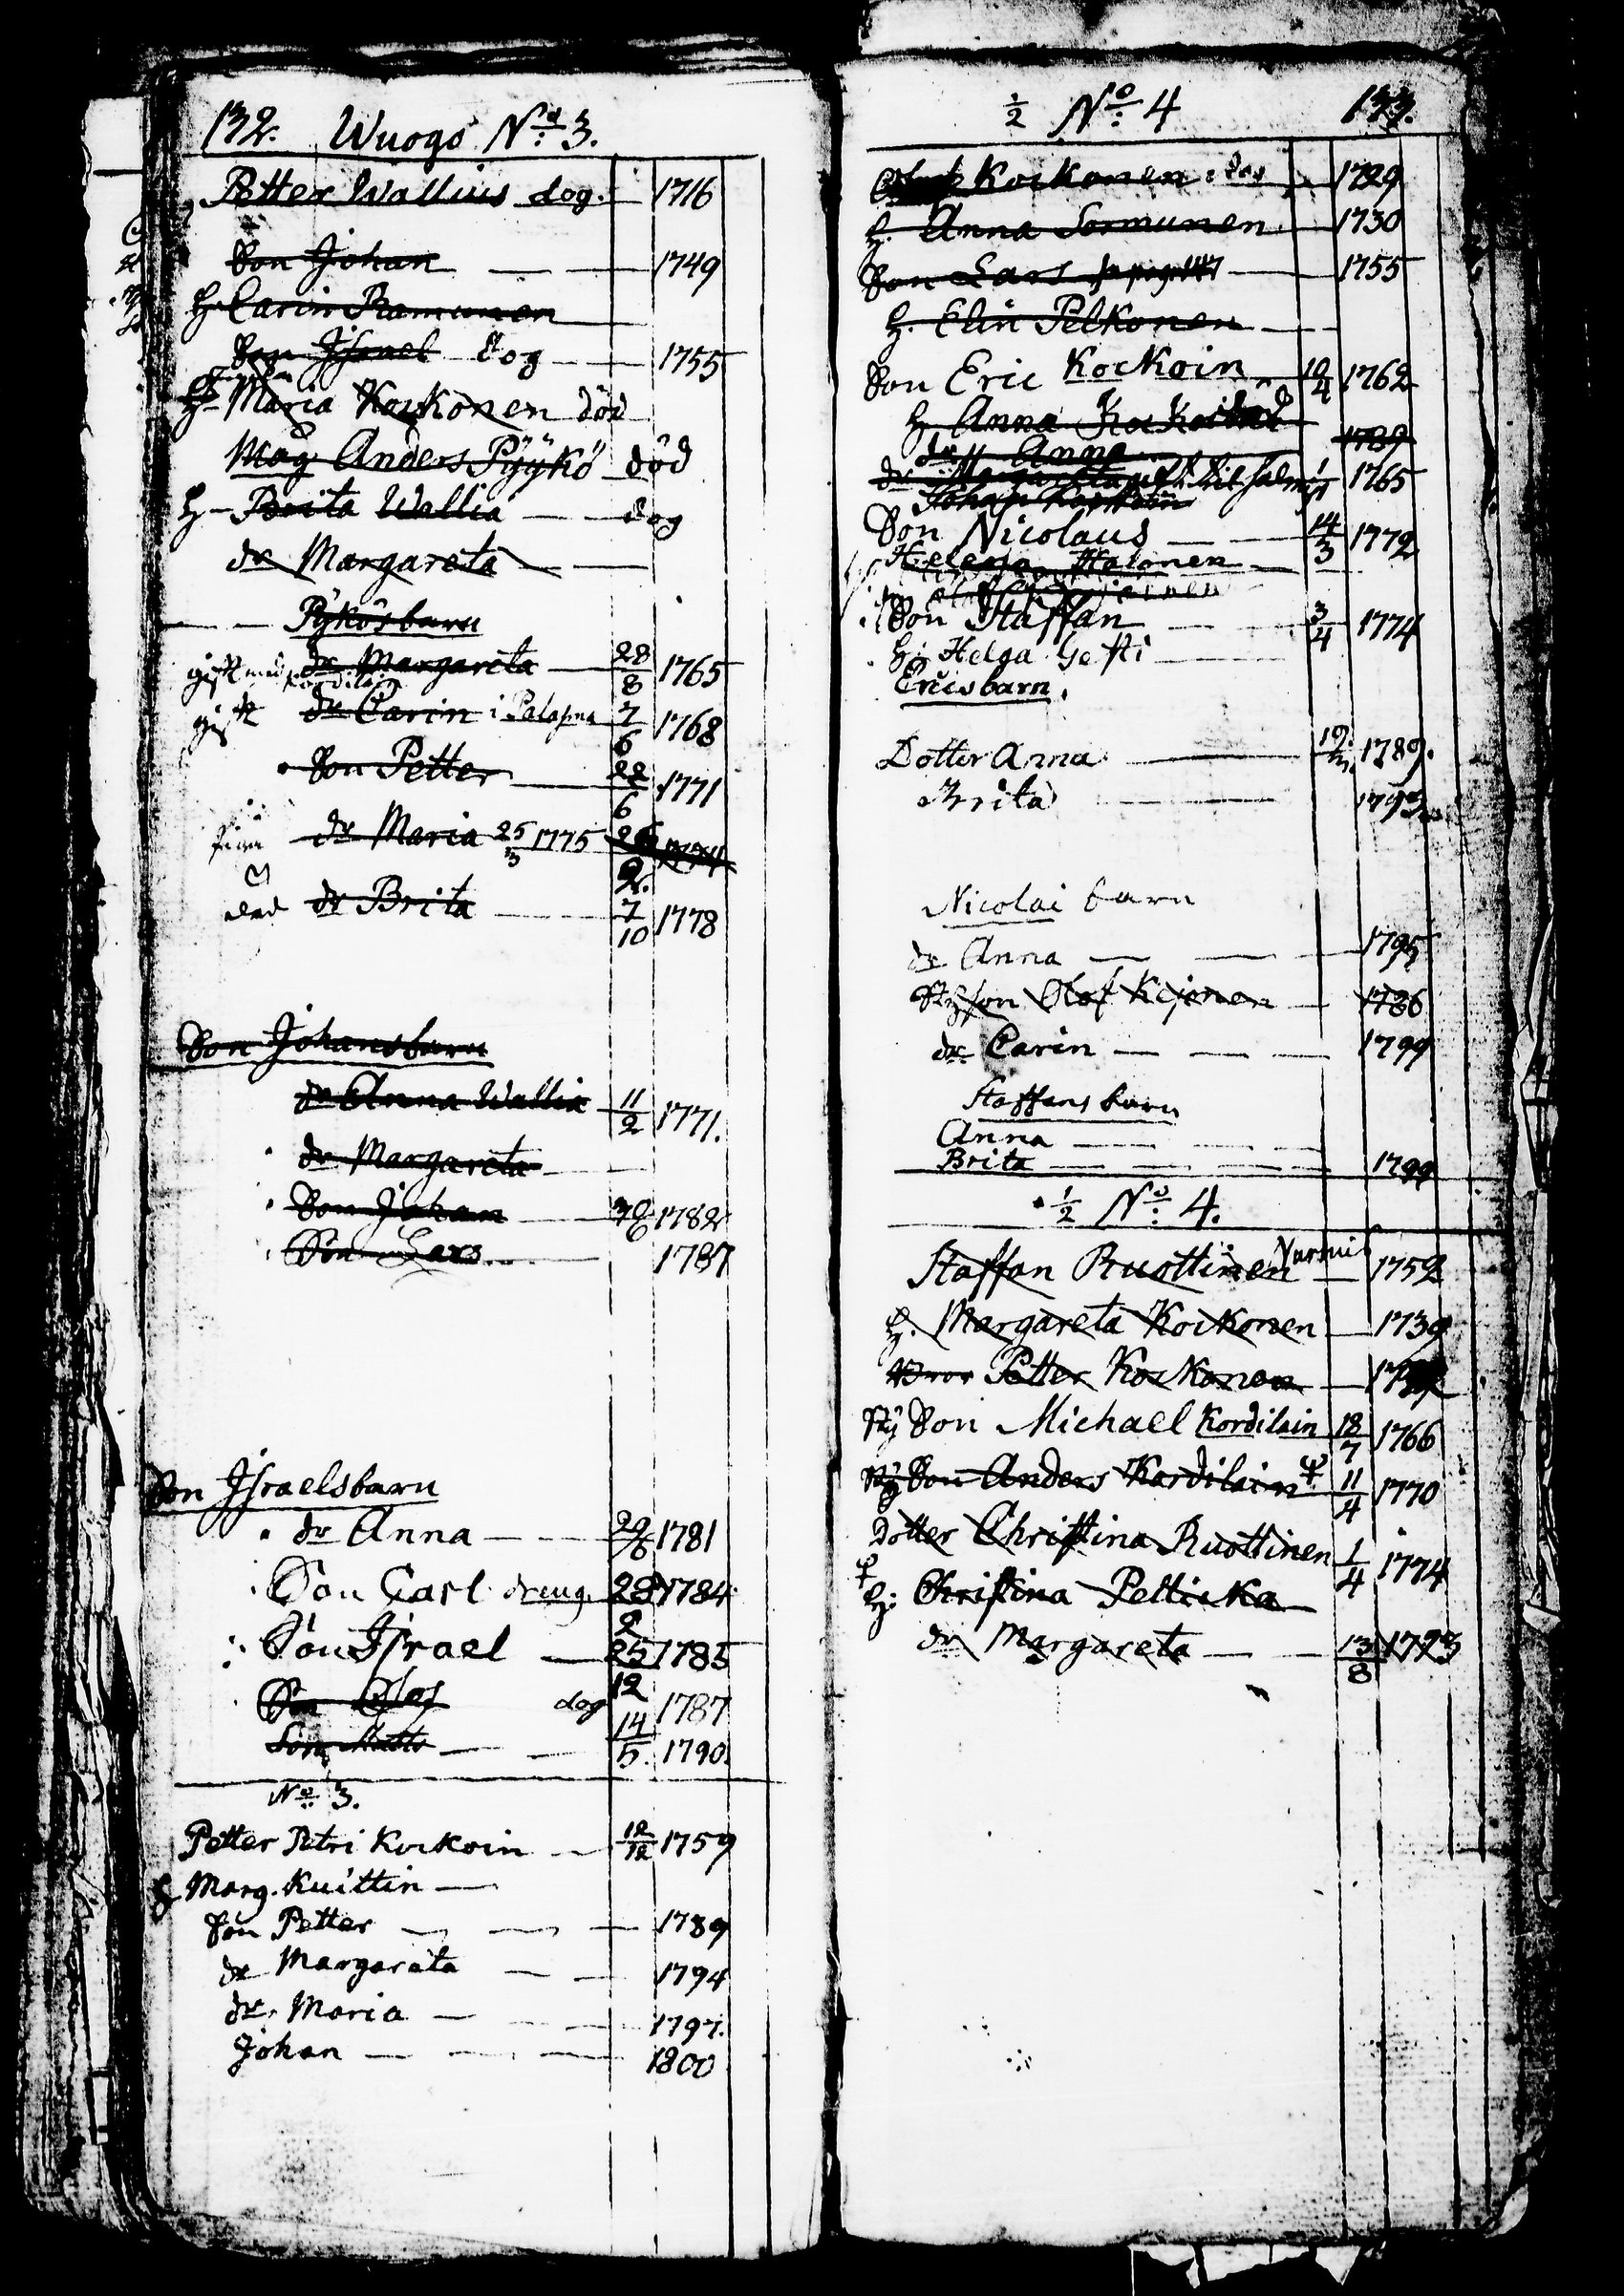 132. Wuogo No. 3.
Petter Wallius dog. 1716
Son Johan 1749
H. Carin Ramunen
Son Israel dog 1755
H. Maria Kockonen död
Mag Anders Pÿÿkö död
H. Brita Wallia dog
dr Margareta
Pÿkös barn
gift med Kordilain dr Margareta 28/8 1765
gift dr Carin i 7/6 1768
Son Petter 22/6 1771
dr Maria 25/3 1775
död dr Brita 7/10 1778
Son Johansbarn
dr Anna Wallia 11/2 1771.
dr Margareta
Son Johan 1782
Son Lars 1787
Son Israelsbarn
dr Anna 1781
Son Carl dreng 28/2 1784
Son Israel 25/12 1785
Son Olof dog 1787
Son 14/5. 1790
No. 3.
Petter Petri Kockoin 12/12 1759
H Marg. Kuittin
Son Petter 1789
dr Margareta 1794
dr. Maria 1797.
Johan 1800
1/2 No. 4 133.
Kockonen dog 1729
H. Anna Sormunen 1730
Son Lars 1755
H. Elin Pelkonen
Son Eric Kockoin 10/4 1762
H Anna
dr Anna 1789
dr Margareta 1765
Johan Kockoin
Son Nicolaus 14/3 1772
Helena Halonen
Son Staffan 3/4 1774
H. Helga Gesti
Ericsbarn.
Dotter Anna 1789.
Brita 1793
Nicolai barn
dr Anna 1795
Stÿfson Olof Kejonen 1786
dr Carin 1799
Staffans barn
Anna
Brita 1799
1/2 No. 4.
Staffan Ruottinen 1752
H. Margareta Kockonen 1739
Bror Petter Kockonen
Stÿ Son Michael Kordilain 18/7 1766
Stÿ Son Anders Kordilain 11/4 1770
Dotter Christina Ruottinen 1/4 1774
H. Christina Pellicka
dr Margareta 13/8 1793